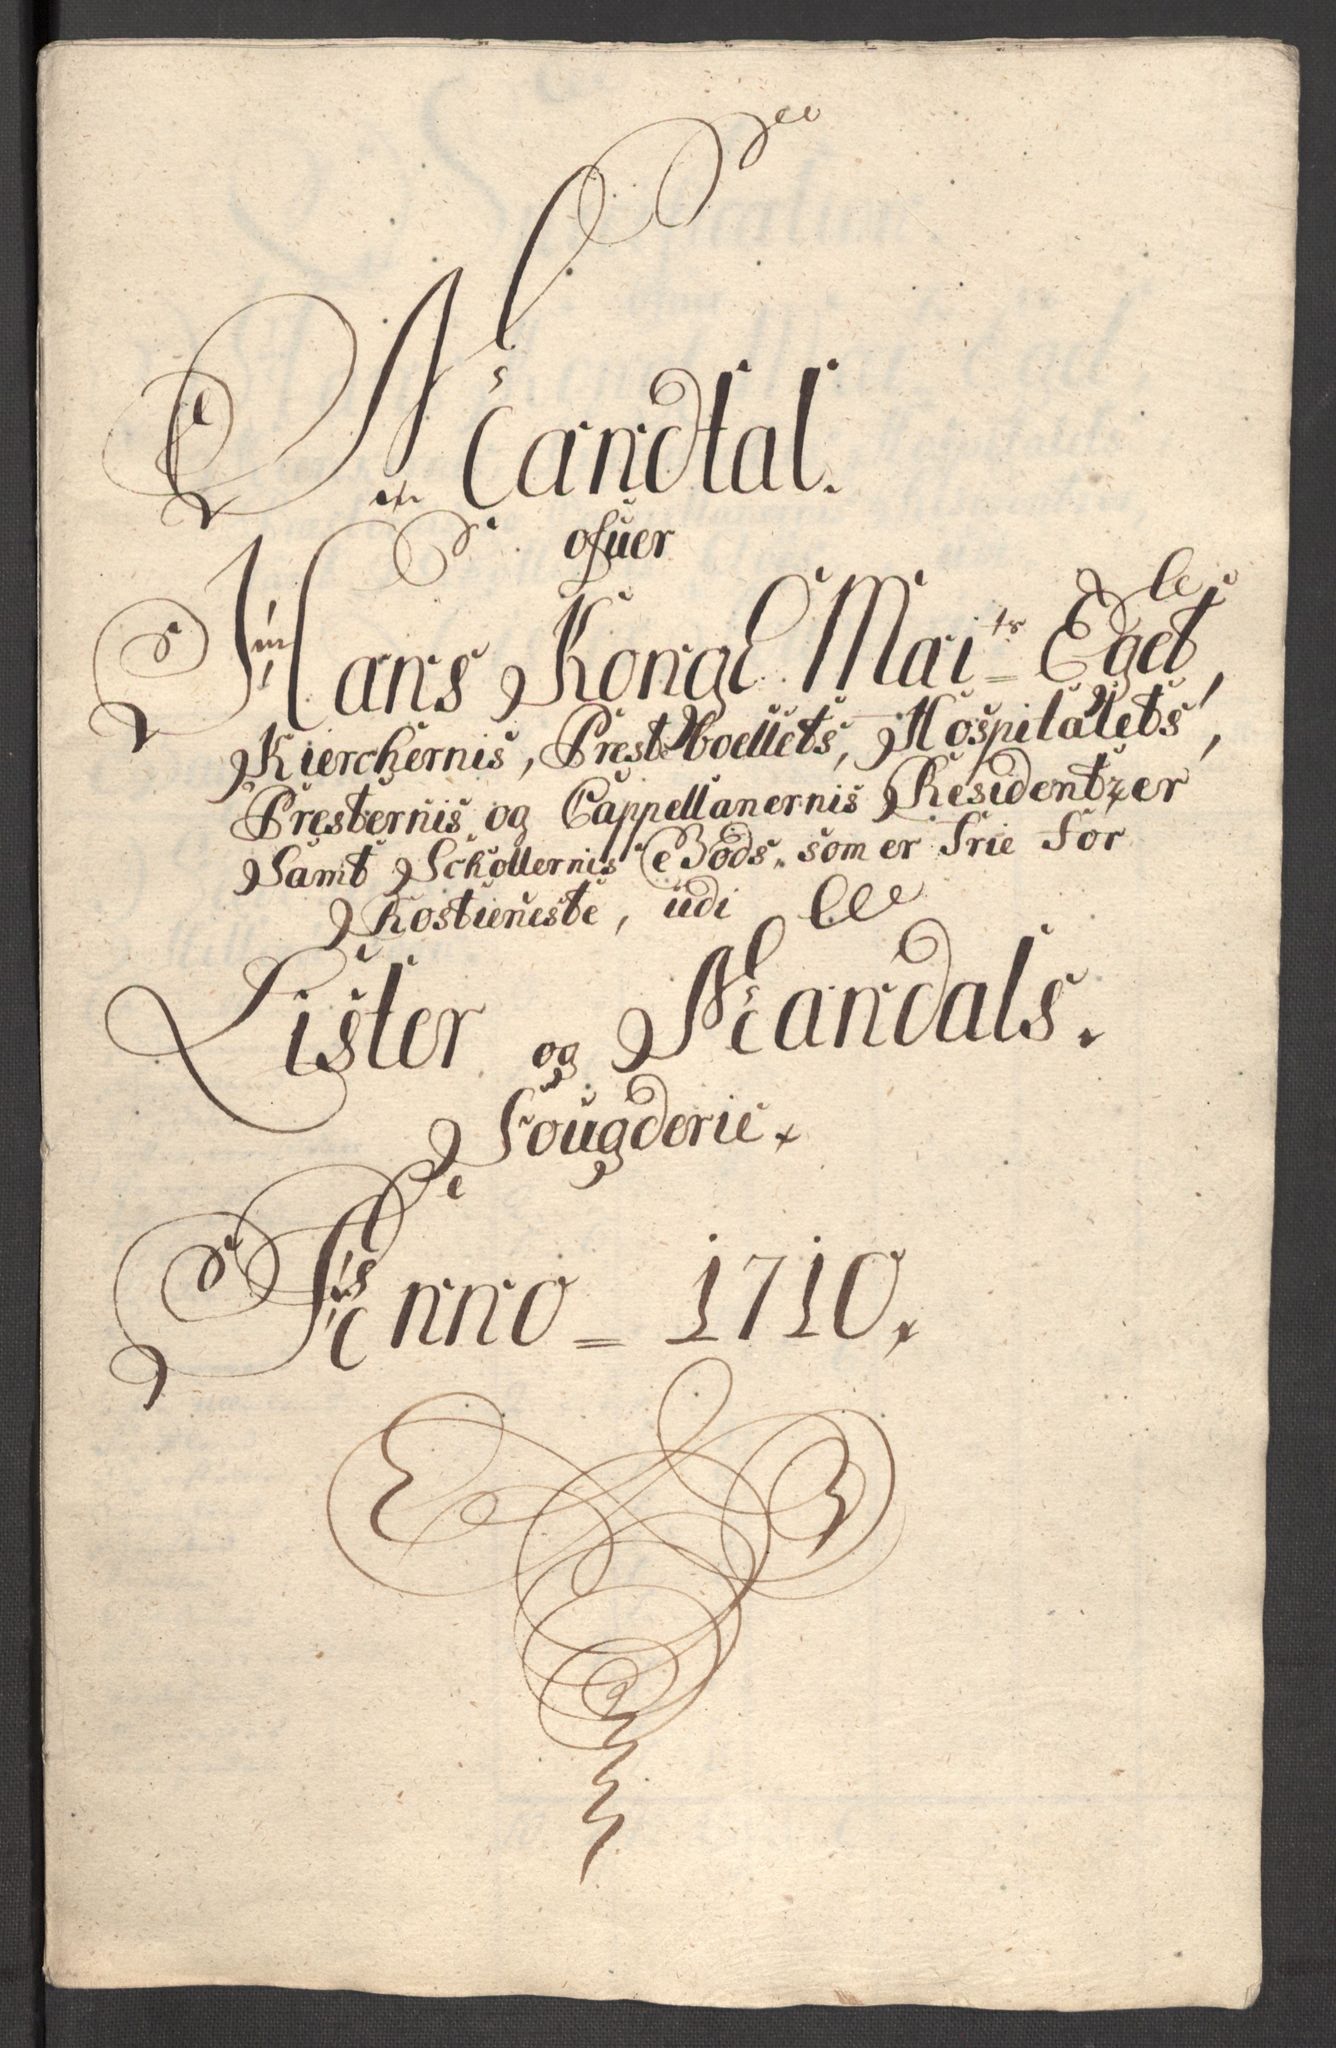 Mandtal.
ofuer
Hans Kongl Mai.ts Eget,
Kierchernis, Prestboellets, Hospitalets,
Presternis og Cappellanernis Residentzer
Samt Schollernis Gods, som er frie for
Rostieneste, udi
Lister og Mandals.
Fougderie.
Anno = 1710.